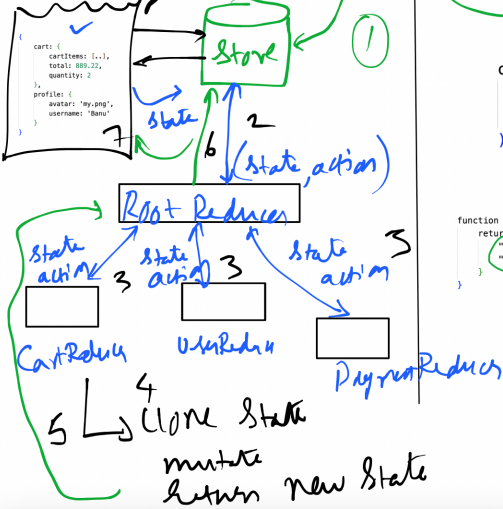 {
cart: {
cartItems: [,.],
total: 889.22,
quantity: 2
},
profile: {
avatar: 'my.png',
username: 'Banu'
}
}
Store
1
state
7
6
2
(state, action)
Root Reducer
state
action
3
state
action
3
state
action
3
CartReducer
UserReducer
PaymentReducer
4
5
Clone state
mutate
Return new state
c
)
function
retur
"
"
}
}